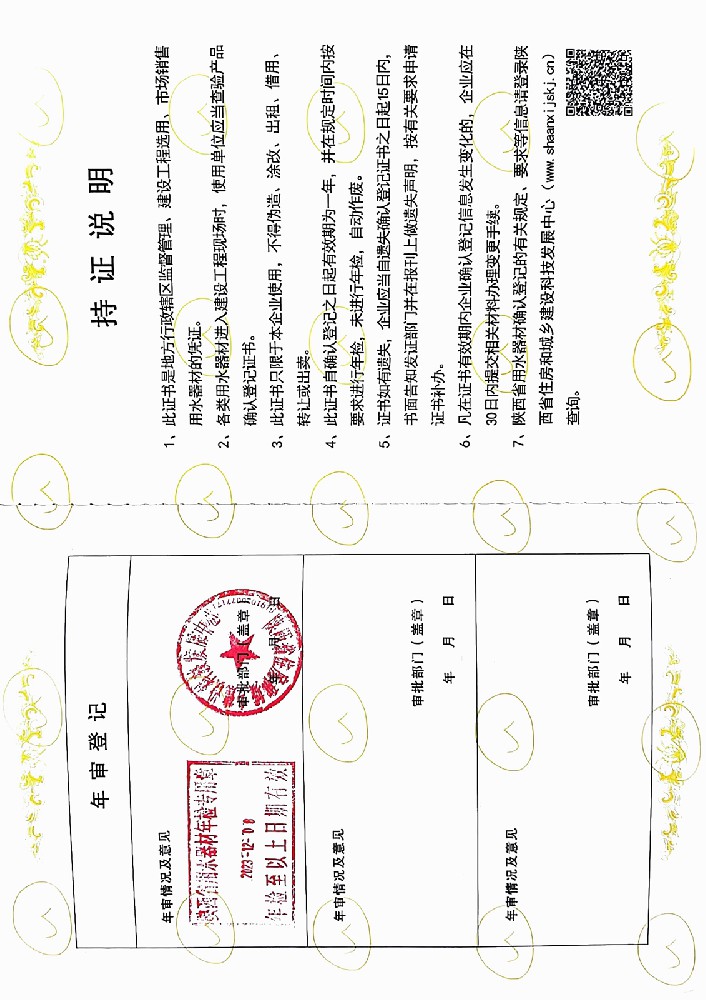 年审登记
年审情况及意见
陕西省用水器材年检专用章
2023-12-08
年检至以上日期有效
审批部门（盖章）
年 月 日
年审情况及意见
审批部门（盖章）
年 月 日
年审情况及意见
审批部门（盖章）
年 月 日
持证说明
1、此证书是地方行政辖区监督管理、建设工程选用、市场销售
用水器材的凭证。
2、各类用水器材进入建设工程现场时，使用单位应当查验产品
确认登记证书。
3、此证书只限于本企业使用，不得伪造、涂改、出租、借用、
转让或出卖。
4、此证书自确认登记之日起有效期为一年，并在规定时间内按
要求进行年检，未进行年检，自动作废。
5、证书如有遗失，企业应当自遗失确认登记证书之日起15日内，
书面告知发证部门并在报刊上做遗失声明，按有关要求申请
证书补办。
6、凡在证书有效期内企业确认登记信息发生变化的，企业应在
30日内提交相关材料办理变更手续。
7、陕西省用水器材确认登记的有关规定、要求等信息请登录陕
西省住房和城乡建设科技发展中心（www.shaanxijskj.cn）
查询。